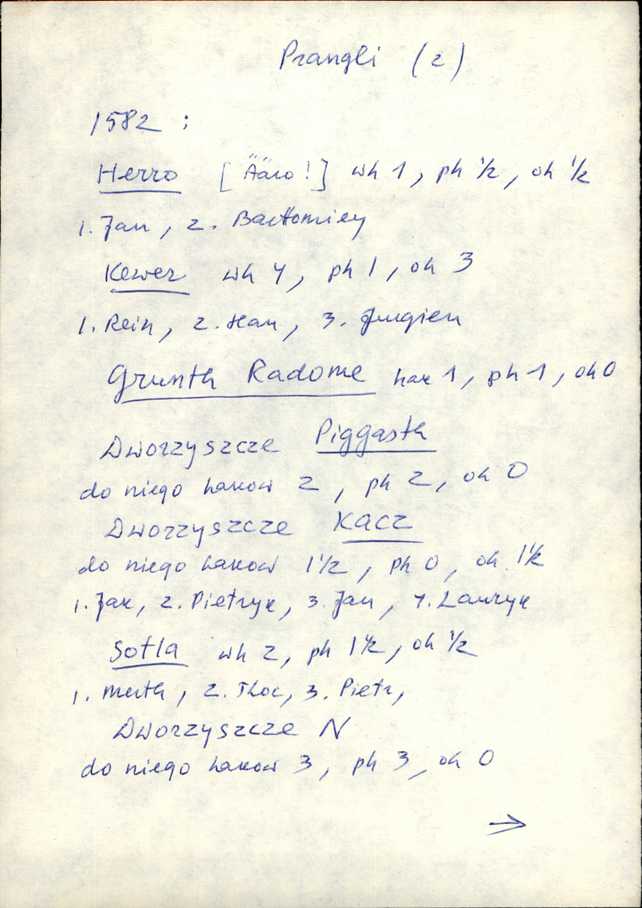 Prangli (2)
1582 :
Herro [Ääro!] wh 1, ph 1/2, oh 1/2
1. Jan, 2. Bartłomiey
Kewer wh 4, ph 1, oh 3
1. Rein, 2. Han, 3. Jurgien
Grunth Radome hak 1, ph 1, oh 0
Dworzyszcze Piggasth
do niego hakow 2, ph 2, oh 0
Dworzyszcze Kacz
do niego hakow 1 1/2, ph 0, oh 1 1/2
1. Jak, 2. Pietrzyk, 3. Jan, 4. Lawryk
Sotla wh 2, ph 1 1/2, oh 1/2
1. Merth, 2. Thoc, 3. Pietr,
Dworzyszcze N
do niego hakow 3, ph 3, oh 0
→